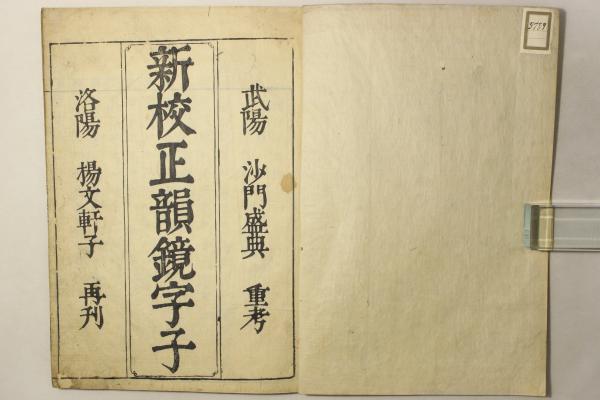 武陽 沙門盛典 重考
新校正韻鏡字子
洛陽 楊文軒子 再刊
5779